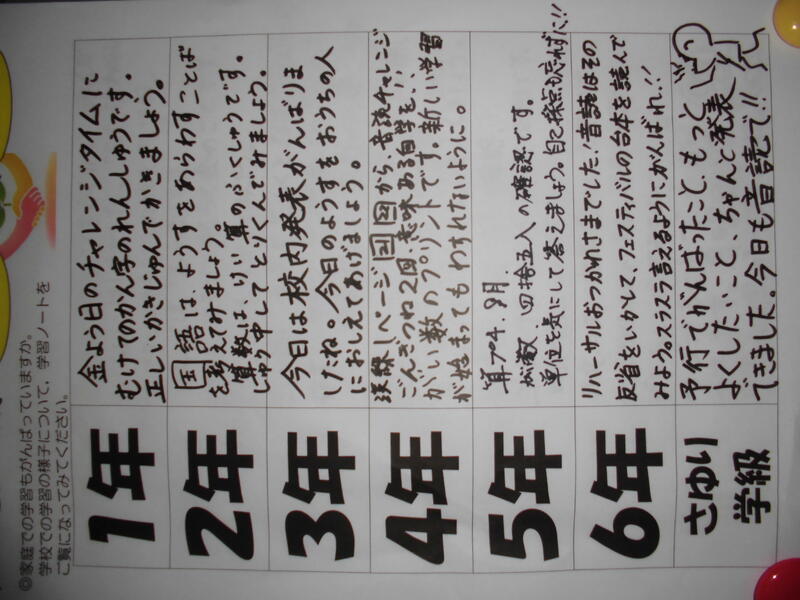 ◎家庭での学習もがんばっていますか。
学校での学習の様子について、学習ノートを
ご覧になってみてください。
1年
金よう日のチャレンジタイムに
むけてのかん字のれんしゅうです。
正しいかきじゅんでかきましょう。
2年
国語は、ようすをあらわすことば
を考えてみましょう。
算数は、りい算のふくしゅうです。
しゅう中してとりくんでみましょう。
3年
今日は校内発表がんばりま
したね。今日のようすをおうちの人
におしえてあげましょう。
4年
漢練1ページ 国 国から、音読チャレンジ
ごんぎつね2回 意味ある自学を!!
がい数のプリントです。新しい学習
が始まってもわすれないように。
5年
算プ4.9月
が数、四捨五入の確認です。
単位を気にして答えましょう。自己採点も忘れずに!!
6年
リハーサルおつかれさまでした!音読はその
反省をいかして、フェスティバルの台本を読んで
みよう。スラスラ言えるようにがんばれ!!
さゆり
学級
予行でがんばったこと、もっと
よくしたいこと、ちゃんと発表
できました。今日も音読で!!